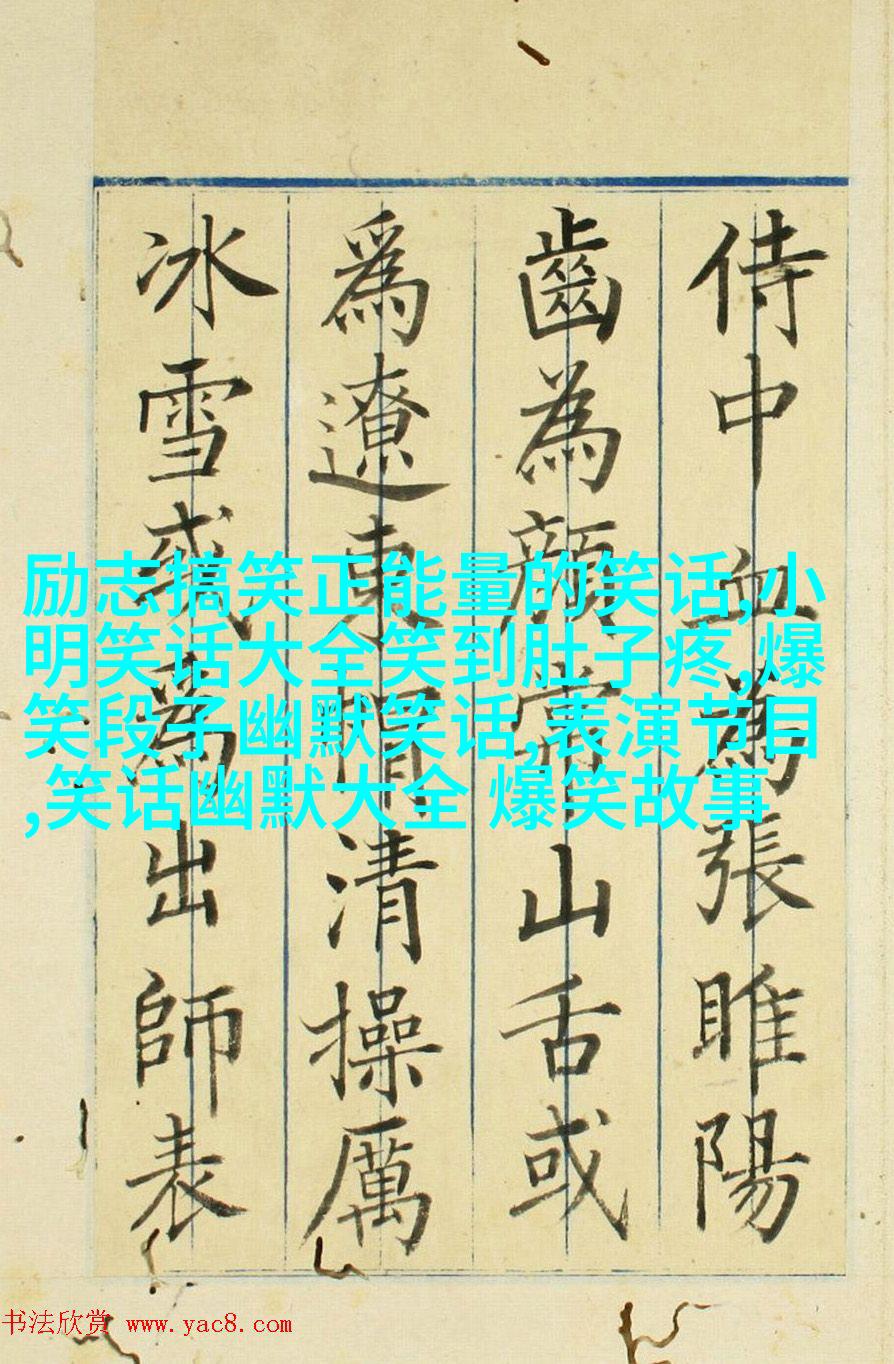 侍中血為張睢陽
齒為顏常山舌或
爲遼東帽清操厲
冰雪或爲出師表
励志搞笑正能量的笑话,小
明笑话大全笑到肚子疼,爆
笑段子幽默笑话,表演节目
,笑话幽默大全 爆笑故事
书法欣赏 www.yac8.com